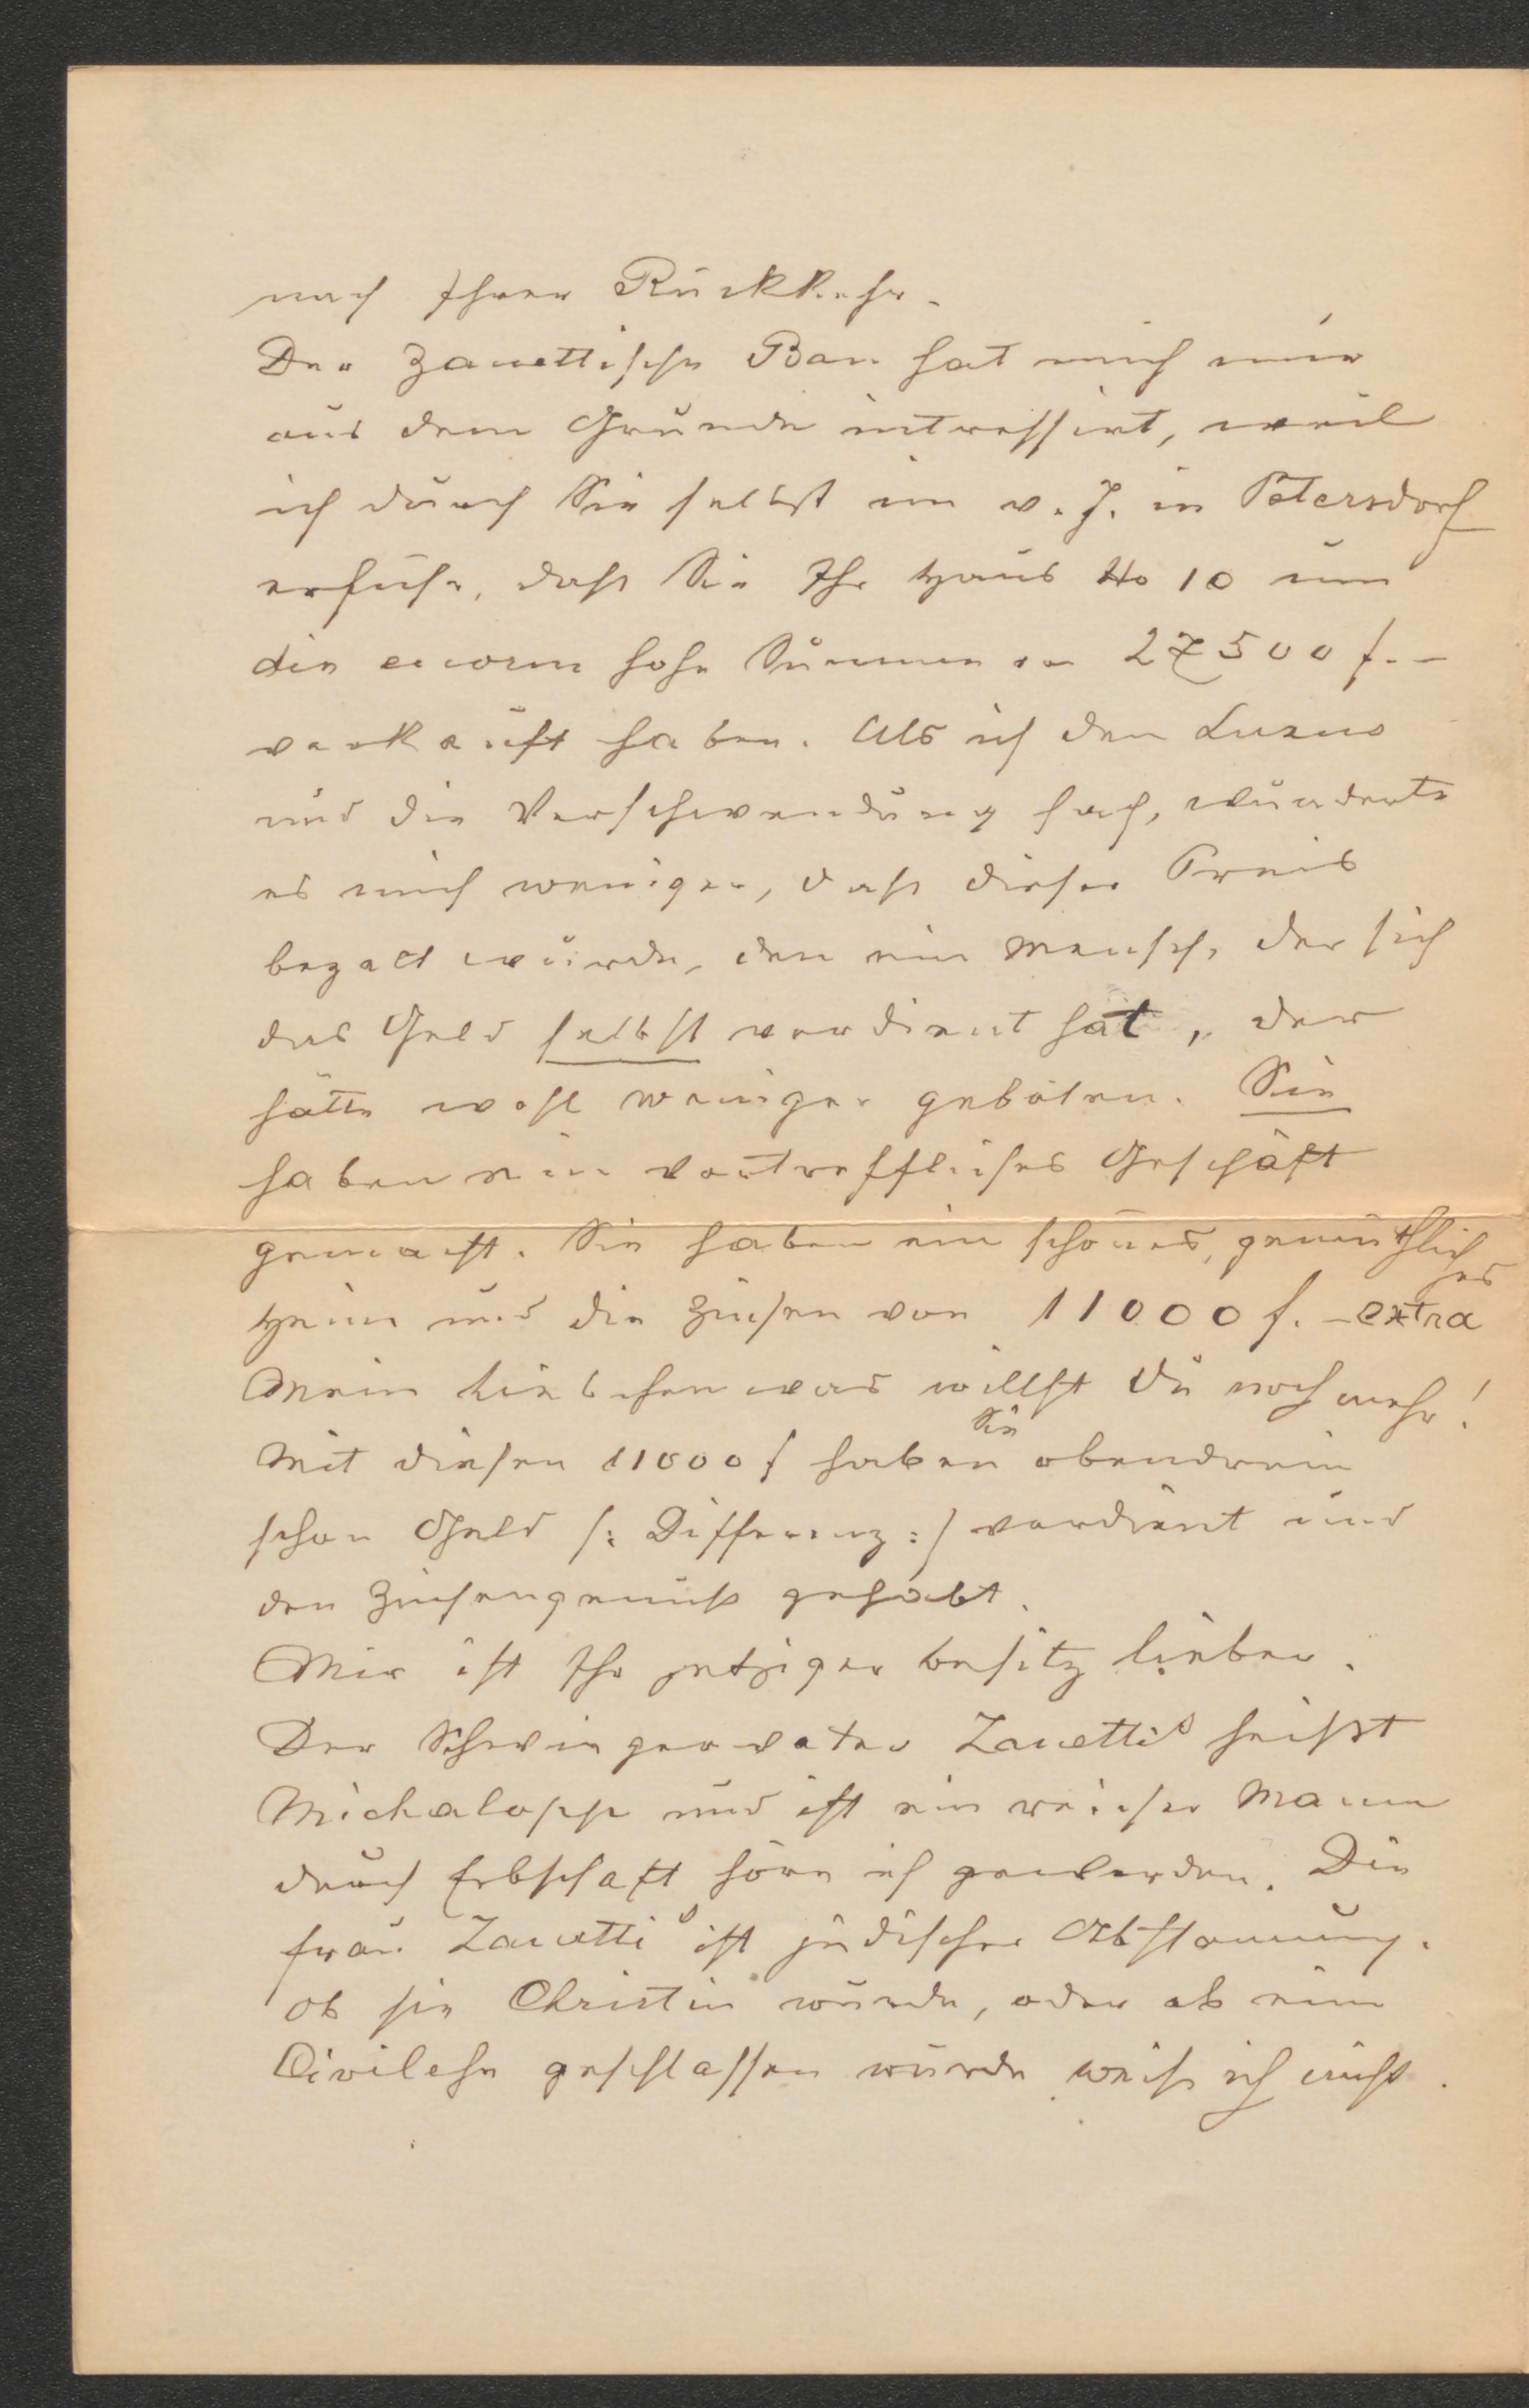 nach Ihrer Rückkehr.
Der Zanettische Bau hat mich nur
aus dem Grunde intressirt, weil
ich durch Sie selbst im v. J. in Petersdorf
erfuhr, daß Sie Ihr Haus No 10 um
die enorm hohe Summe von 27500 f. –
verkauft haben. Als ich den Luxus
und die Verschwendung sah, wunderte
es mich weniger, daß dieser Preis
bezalt wurde, den ein Mensch, der sich
das Geld selbst verdient hat, der
hätte wohl weniger geboten. Sie
haben ein vortreffliches Geschäft
gemacht. Sie haben ein schönes, gemüthliches
Heim und die Zinsen von 11000 f. – extra
Mein Liebchen was willst Du noch mehr!
Mit diesen 11000 f haben Sie obendrein
schon Geld /: Differenz :/ verdient und
den Zinsengenuß gehabt.
Mir ist Ihr jetziger Besitz lieber.
Der Schwiegervater Zanettis heißt
Michalopp und ist ein reicher Mann
durch Erbschaft höre ich geworden. Die
Frau Zanettis ist jüdischer Abstammung.
Ob sie Christin wurde, oder ob eine
Civilehe geschlossen wurde weiß ich nicht.